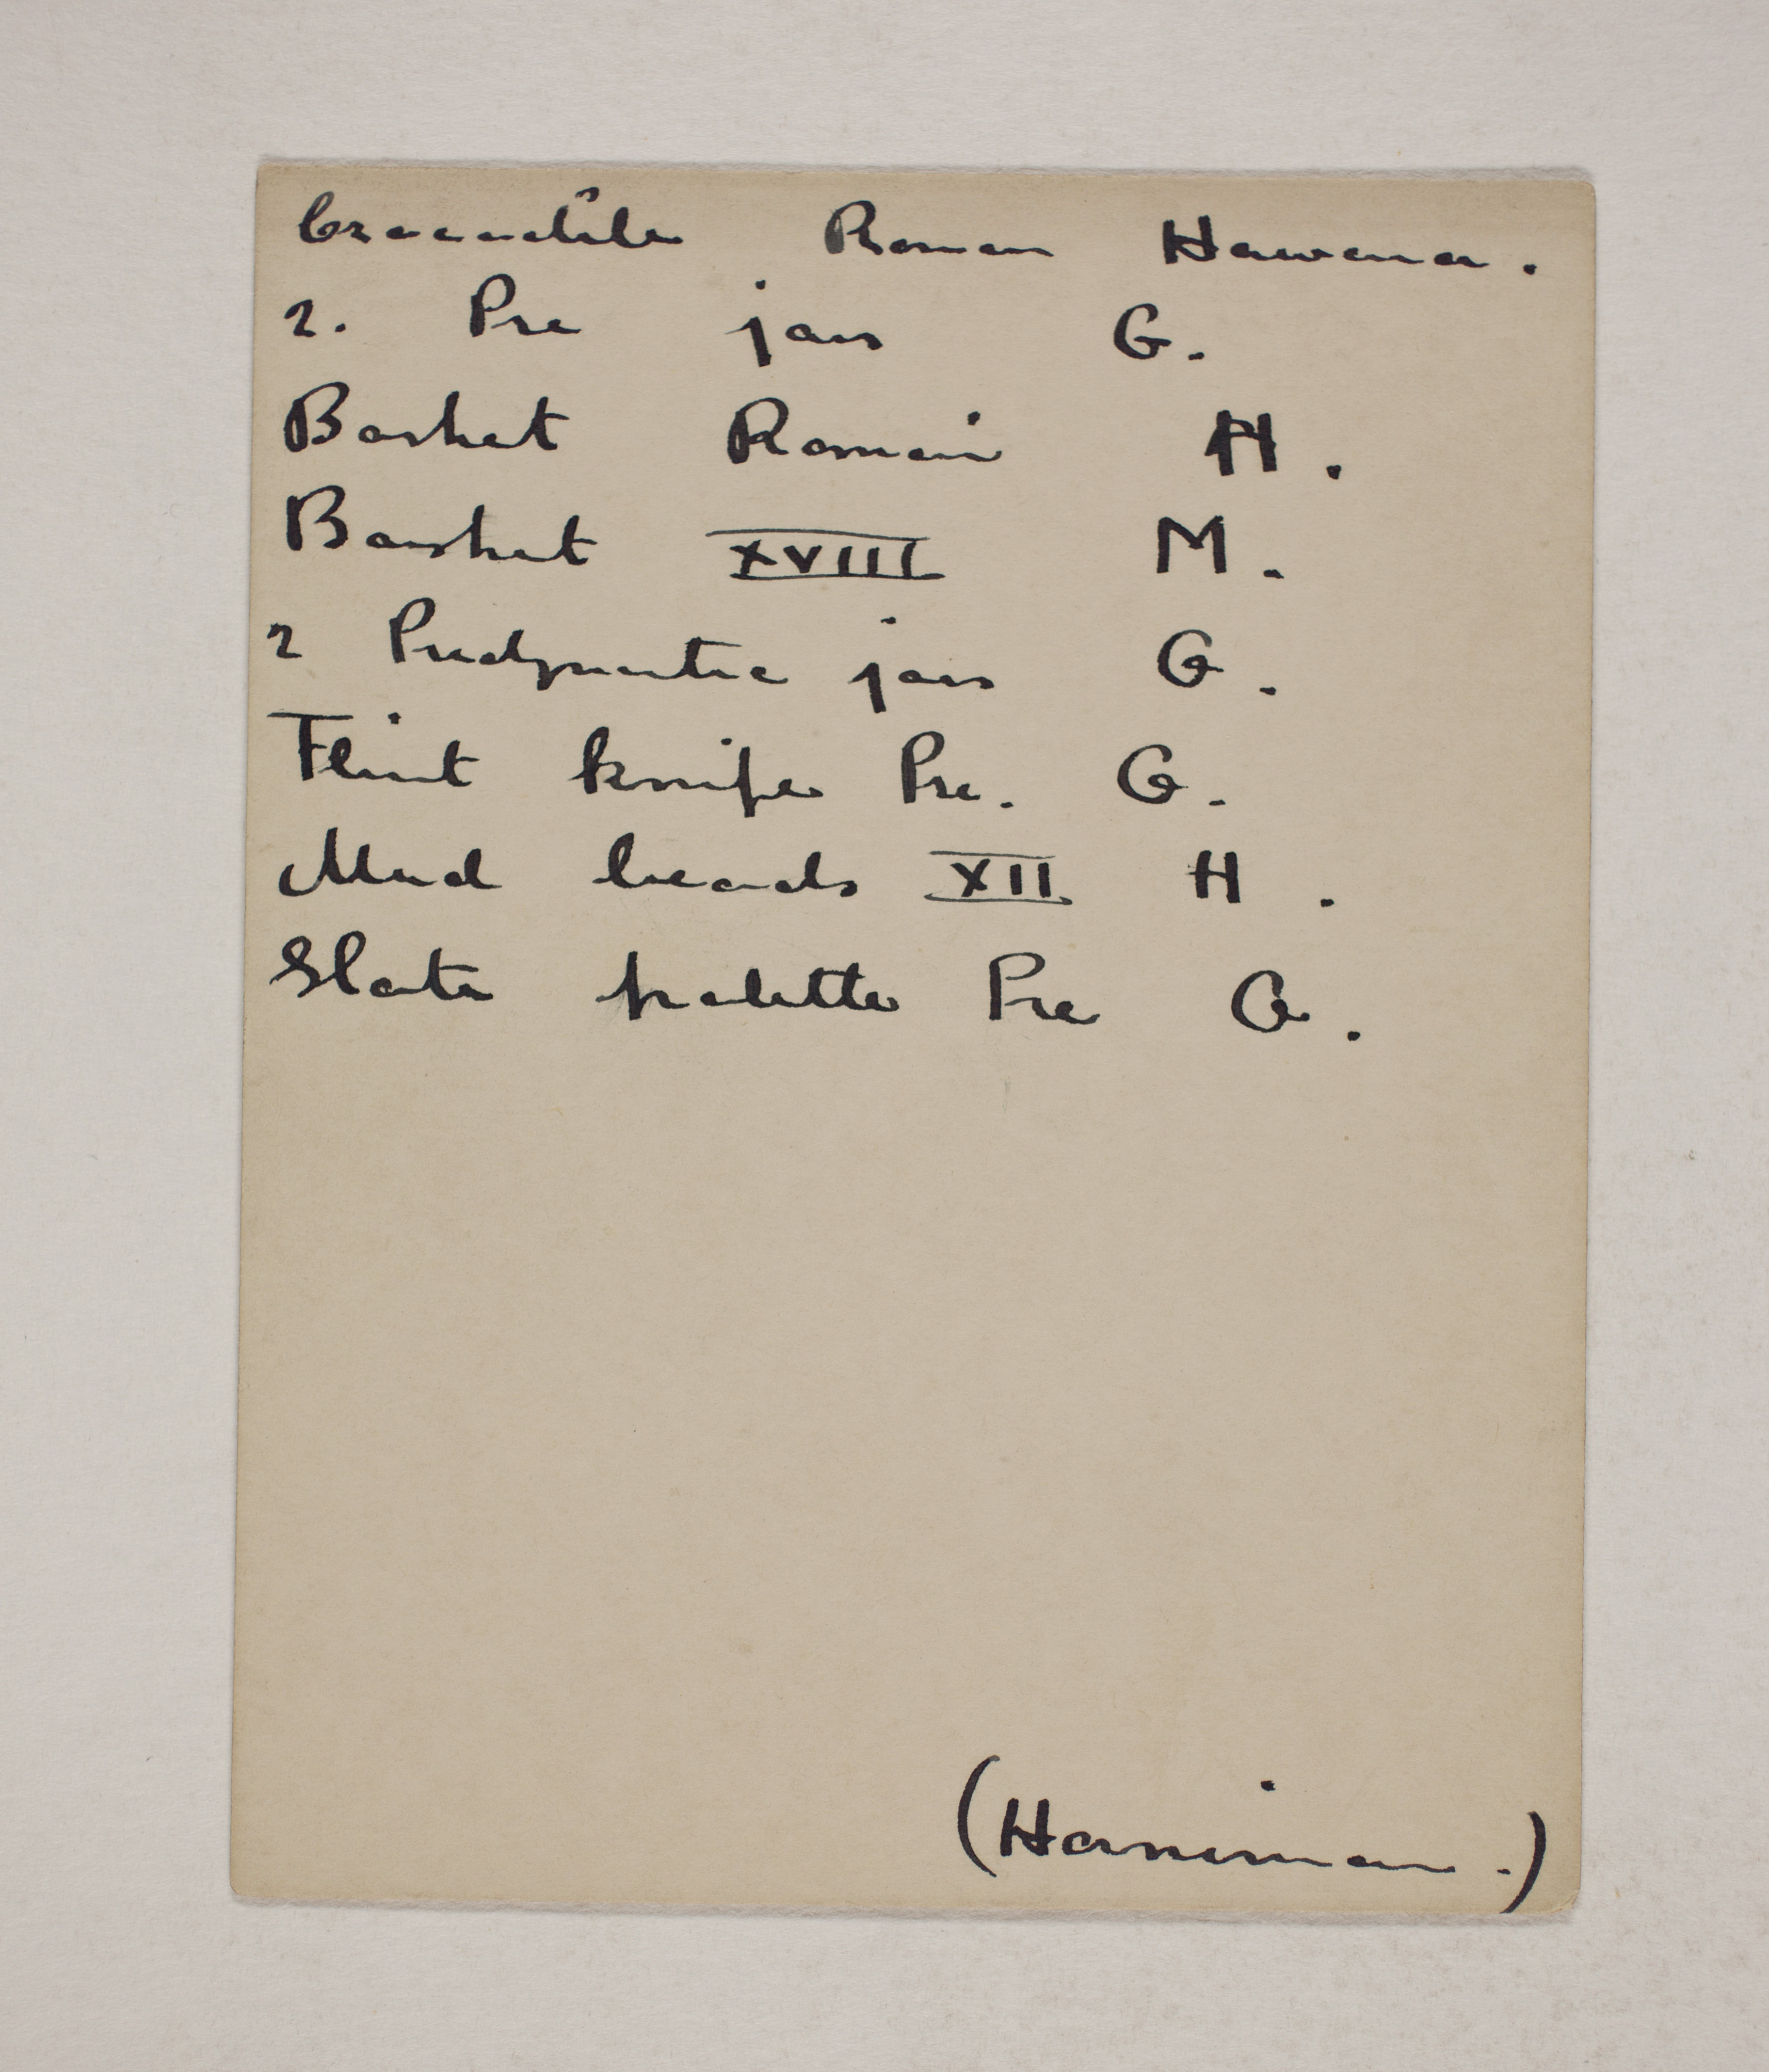 Crocodile Roman Hawara.
2. Pre jars G.
Basket Roman H.
Basket XVIII M.
2 Predynastic jars G.
Flint knife Pre. G.
Mud beads XII H.
Slate palette Pre G.
(Horniman.)